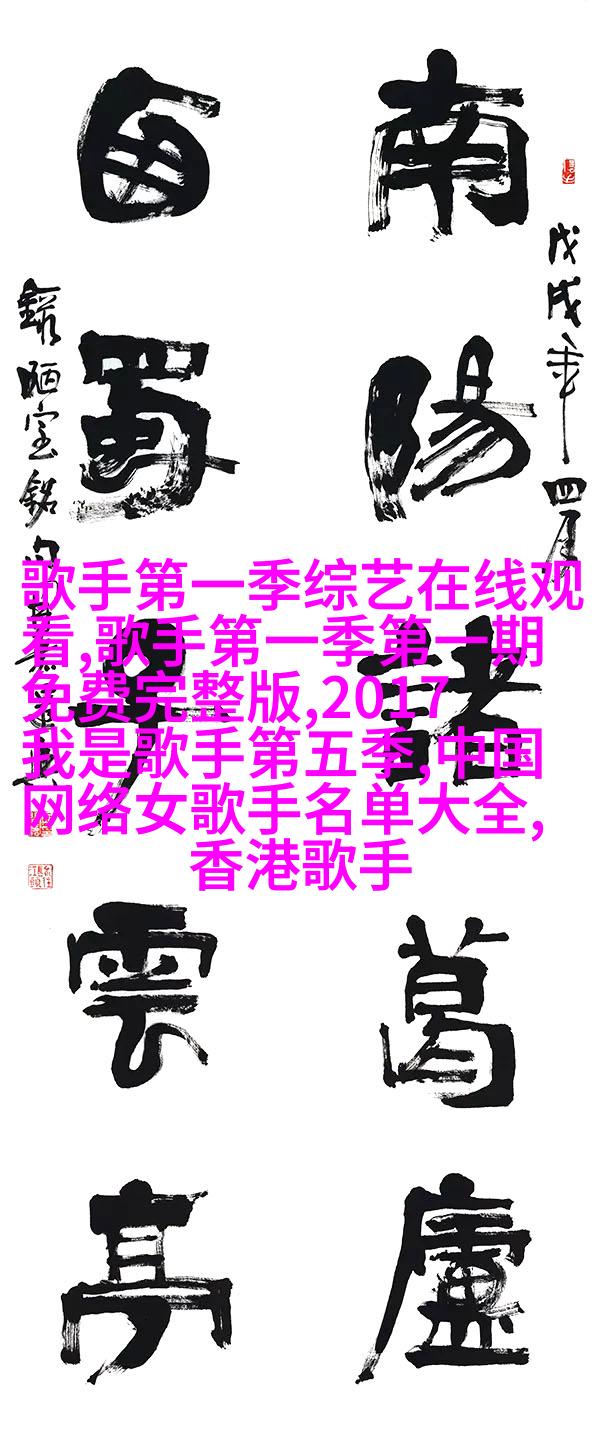 戊戌年四月
南陽諸葛廬
西蜀子雲亭
錄陋室銘句
歌手第一季综艺在线观
看,歌手第一季第一期
免费完整版,2017
我是歌手第五季,中国
网络女歌手名单大全,
香港歌手